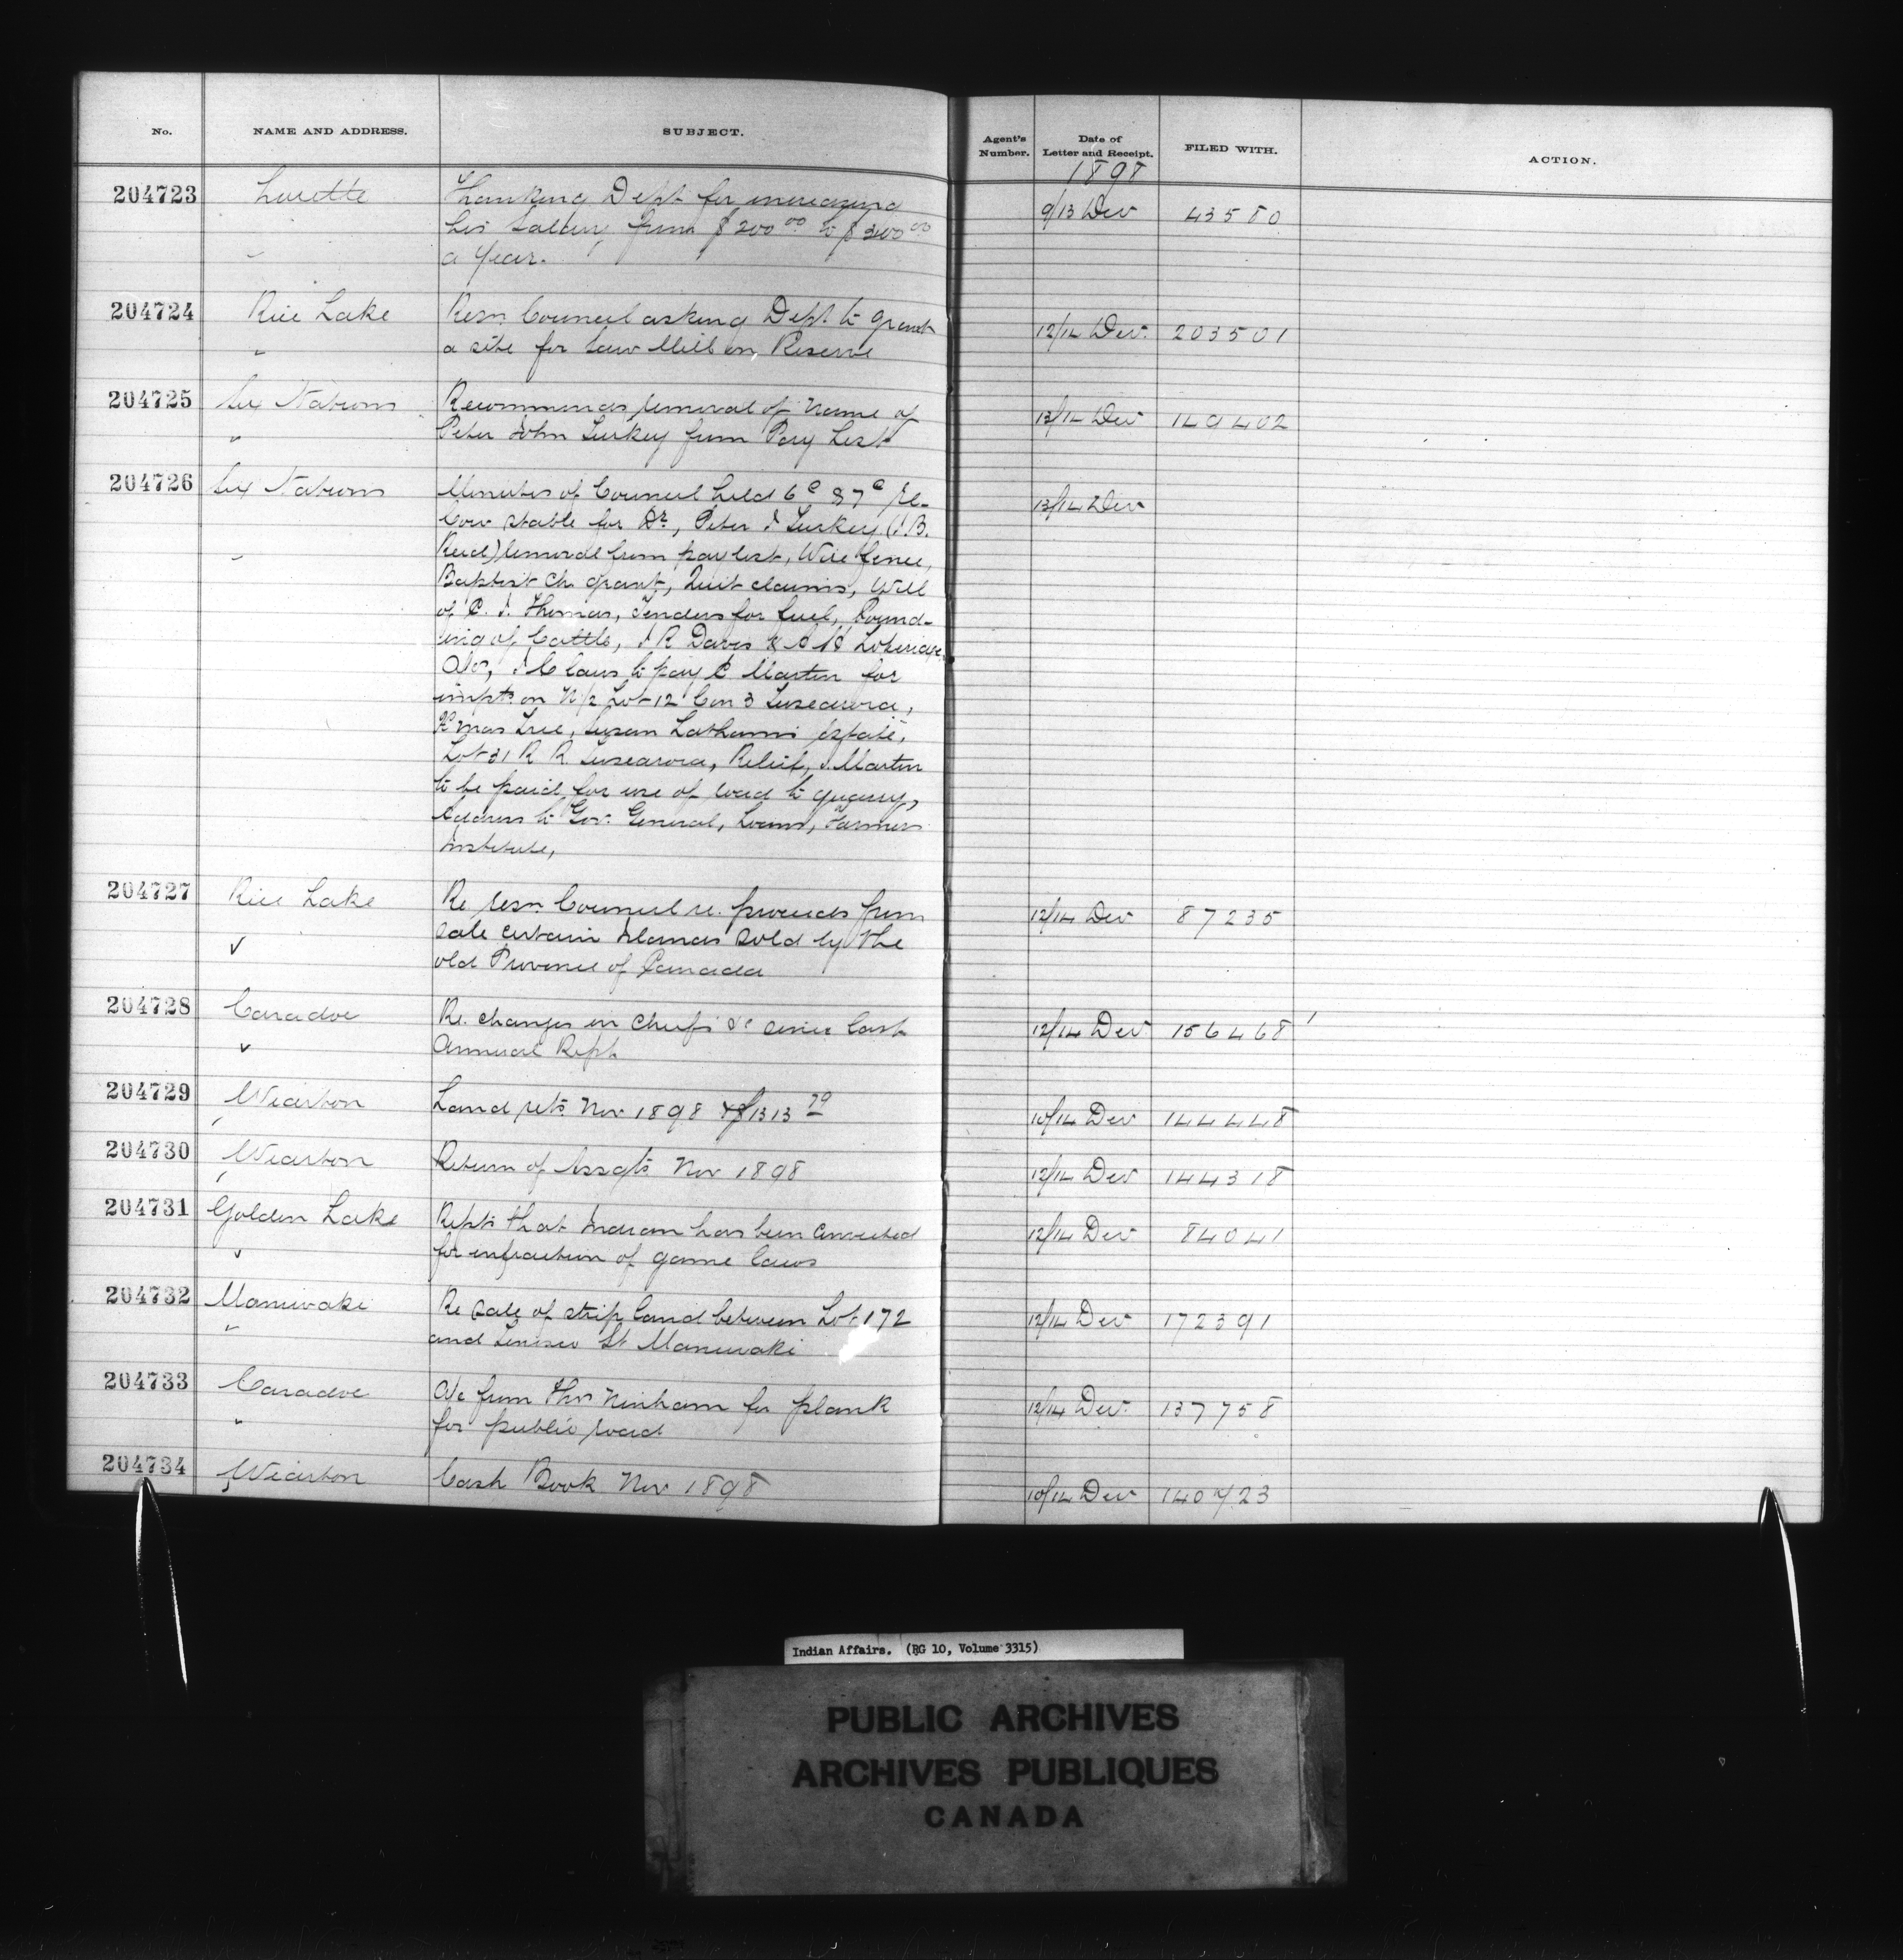 No. NAME AND ADDRESS. SUBJECT. Agent's Number. Date of Letter and Receipt. FILED WITH. ACTION.
1898
204723 Lorette Thanking Dept for increasing 9/13 Dec 43580
his Salary from $200 00 to $300 00
" a Year.
204724 Rice Lake Resn Council asking Dept to grant 12/14 Dec. 203501
" a site for Saw Mill on Reserve
204725 Six Nations Recommends removal of Name of 13/14 Dec 149402
" Peter John Turkey from Pay List
204726 Six Nations Minutes of Council held 6th & 7th Re- 13/14 Dec
Cow Stable for Dr, Peter J Turkey (J.B.
" Reid) removal from pay list, Wire fence,
Baptist Ch. grant, Quit claims, Will
of P. J. Thomas, Tenders for fuel, Pound-
ing of Cattle, J R Davis &
J C laws to pay P Martin for
impts on N/2 Lot 12 Con 3 Tuscarora,
Xmas Tree, Susan Lathams Estate,
Lot 31 R R Tuscarora, Relief, J. Martin
to be paid for use of road to quarry,
Address to Gov. General, Loans, Farmers
Institute,
204727 Rice Lake Re resn. Council re. proceeds from 12/14 Dec 87235
✓ sale certain Islands sold by the
old Province of Canada
204728 Caradoc Re. changes in Chiefs &c since last 12/14 Dec 156468
✓ Annual Rept.
204729 Wiarton Land rets Nov 1898 & $1313 79 10/14 Dec 144448
204730 Wiarton Return of Assgts Nov 1898 12/14 Dec 144318
204731 Golden Lake Repts that Indian has been convicted 12/14 Dec 84041
✓ for infraction of game laws
204732 Maniwaki Re sale of strip land between Lot 172 12/14 Dec 172391
" and St Maniwaki
204733 Caradoc A/c from Thos Ninham for plank 12/14 Dec. 137758
" for public road
204734 Wiarton Cash Book Nov 1898 10/14 Dec 140723
Indian Affairs. (RG 10, Volume 3315)
PUBLIC ARCHIVES
ARCHIVES PUBLIQUES
CANADA